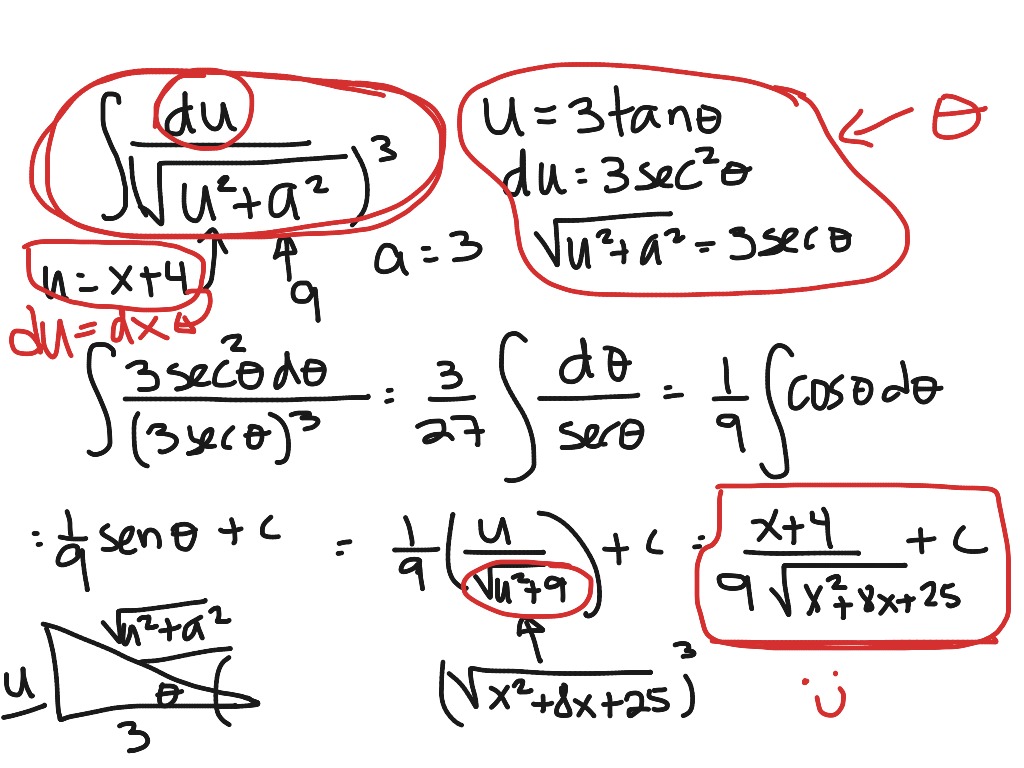 ∫ du / (√(u²+a²))³
u = 3tanθ
du = 3sec²θ
√(u²+a²) = 3secθ
θ
u = x+4
9
a = 3
du = dx
∫ 3sec²θdθ / (3secθ)³ = 3/27 ∫ dθ/secθ = 1/9 ∫ cosθdθ
= 1/9 senθ + c = 1/9 (u/√(u²+9)) + c = (x+4)/(9√(x²+8x+25)) + c
√(u²+a²)
u
θ
3
(√(x²+8x+25))³